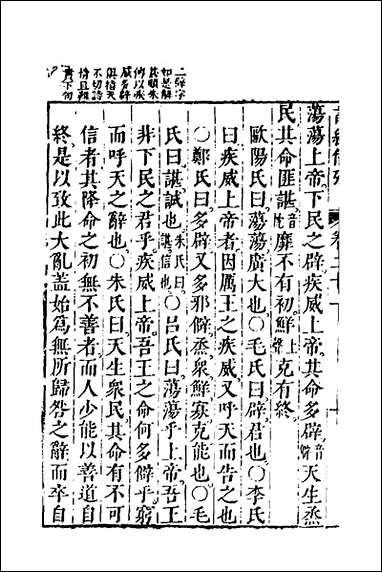 二辟字
如是解
甚順朱
傳以疾
威多辟
與指天
不切詩
蕩蕩上帝。下民之辟。疾威上帝。其命多辟。音僻天生烝
民其命匪諶。音忱靡不有初。鮮上聲克有終。
歐陽氏曰蕩蕩廣大也〇毛氏曰辟君也〇李氏
曰疾威上帝者因厲王之疾威又呼天而告之也
〇鄭氏曰多辟又多邪僻烝衆鮮寡克能也〇毛
氏曰諶誠也朱氏曰諶信也〇呂氏曰蕩蕩乎上帝吾王
非下民之君乎疾威上帝吾王之命何多僻乎窮
而呼天之辭也〇朱氏曰天生衆民其命有不可
信者其降命之初無不善者而人少能以善道自
終是以致此大亂蓋始爲無所歸咎之辭而卒自